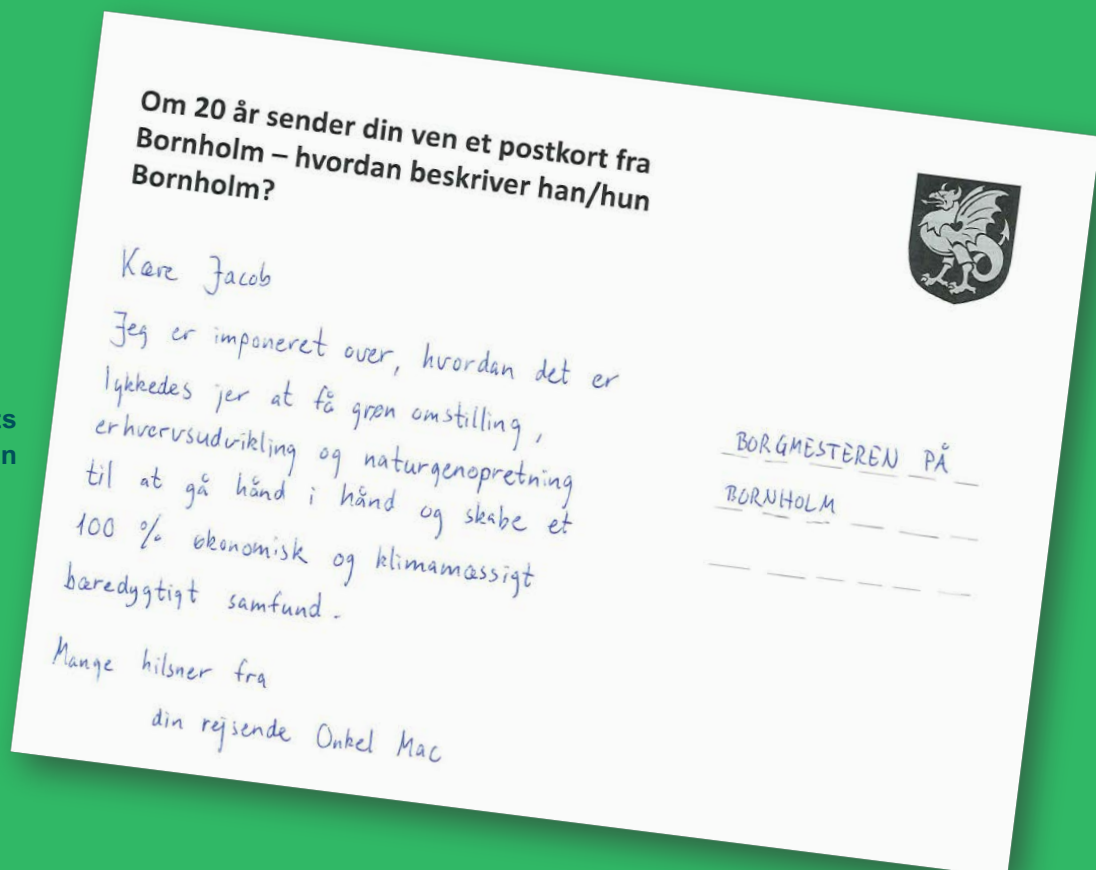 Om 20 år sender din ven et postkort fra
Bornholm – hvordan beskriver han/hun
Bornholm?
Kære Jacob
Jeg er imponeret over, hvordan det er
lykkedes jer at få grøn omstilling,
erhvervsudvikling og naturgenopretning
til at gå hånd i hånd og skabe et
100 % økonomisk og klimamæssigt
bæredygtigt samfund.
Mange hilsner fra
din rejsende Onkel Mac
BORGMESTEREN PÅ
BORNHOLM